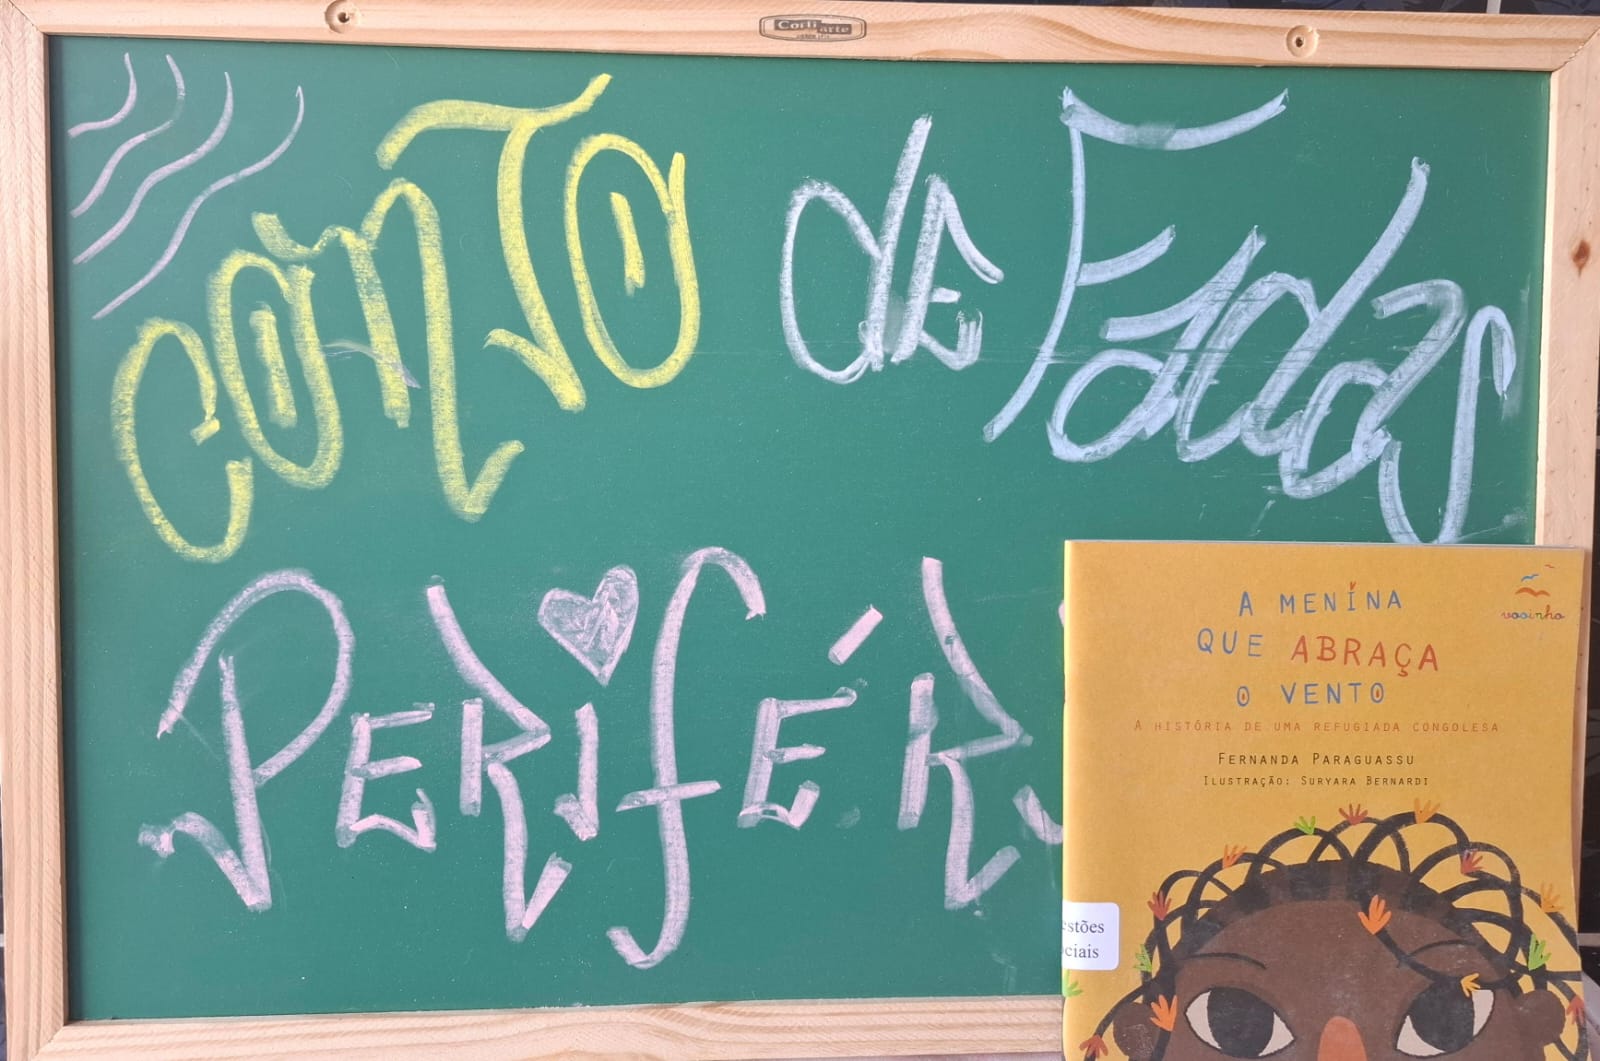 Corti arte
CONTO de Fadas
PERIFÉR
A MENINA
QUE ABRAÇA
O VENTO
A HISTÓRIA DE UMA REFUGIADA CONGOLESA
FERNANDA PARAGUASSU
ILUSTRAÇÃO: SURYARA BERNARDI
vooinho
stões
ciais